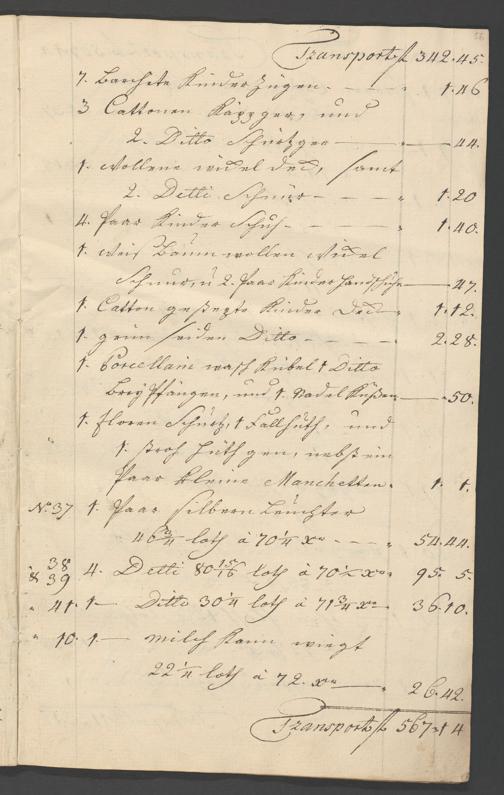 Transport f 342.45.
7. Barchete Kinder Zügen - - - " 1.46
3 Cattonen Käppger, und
2. Ditto Schürtzger — " — 44.
1. Wollene widel Deck, samt
2. Detti Schnür - - - " 1.20
4. Paar Kinder Schuh - - - " 1.40.
1. weis Baumwollen Widel
Schnur, u 2. Paar Kinder Handschuhe — 47.
1. Catton gestepte Kinder Deck " 1.12.
1. grün seiden Ditto - - - " 2.28.
1. Porcellain wasch Kübel 1 Ditto
Brey Pfängen, und 1. Nadel Küßen — " 50.
1. floren Schürtz, 1 Fallhuth, und
1. stroh Hüth gen, nebst ein
Paar kleine Manchetten. " 1. 1.
No. 37 1. Paar silbern Leuchter
46 3/4 loth à 70 1/4 xr - - " 54.44.
" 38 & 39 4. Detti 80 15/16 loth à 70 1/2 xr " 95. 5.
" 41. 1 — Ditto 30 1/4 loth à 71 3/4 xr " 36.10.
" 10. 1 — Milch Kann wiegt
22 1/4 loth à 72. xr — " 26.42.
Transport f 567.14